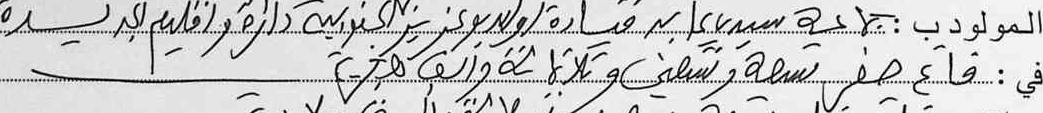 المولود ب: جماعة سيدي علي بن قيادة اولاد بوعزيز الجنوبية دائرة واقليم الجديدة
في: فاتح صفر تسعة وتسعين وثلاثمائة والف هجرية